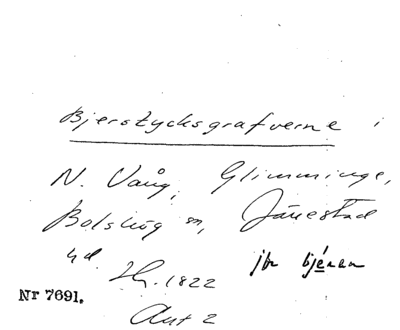 Bjerstycksgrafverne i
N. Vång, Glimminge,
Bolshög sn, Järrestad
hd Ih. 1822 jfr bjéran
Nr 7691.
Ant 2